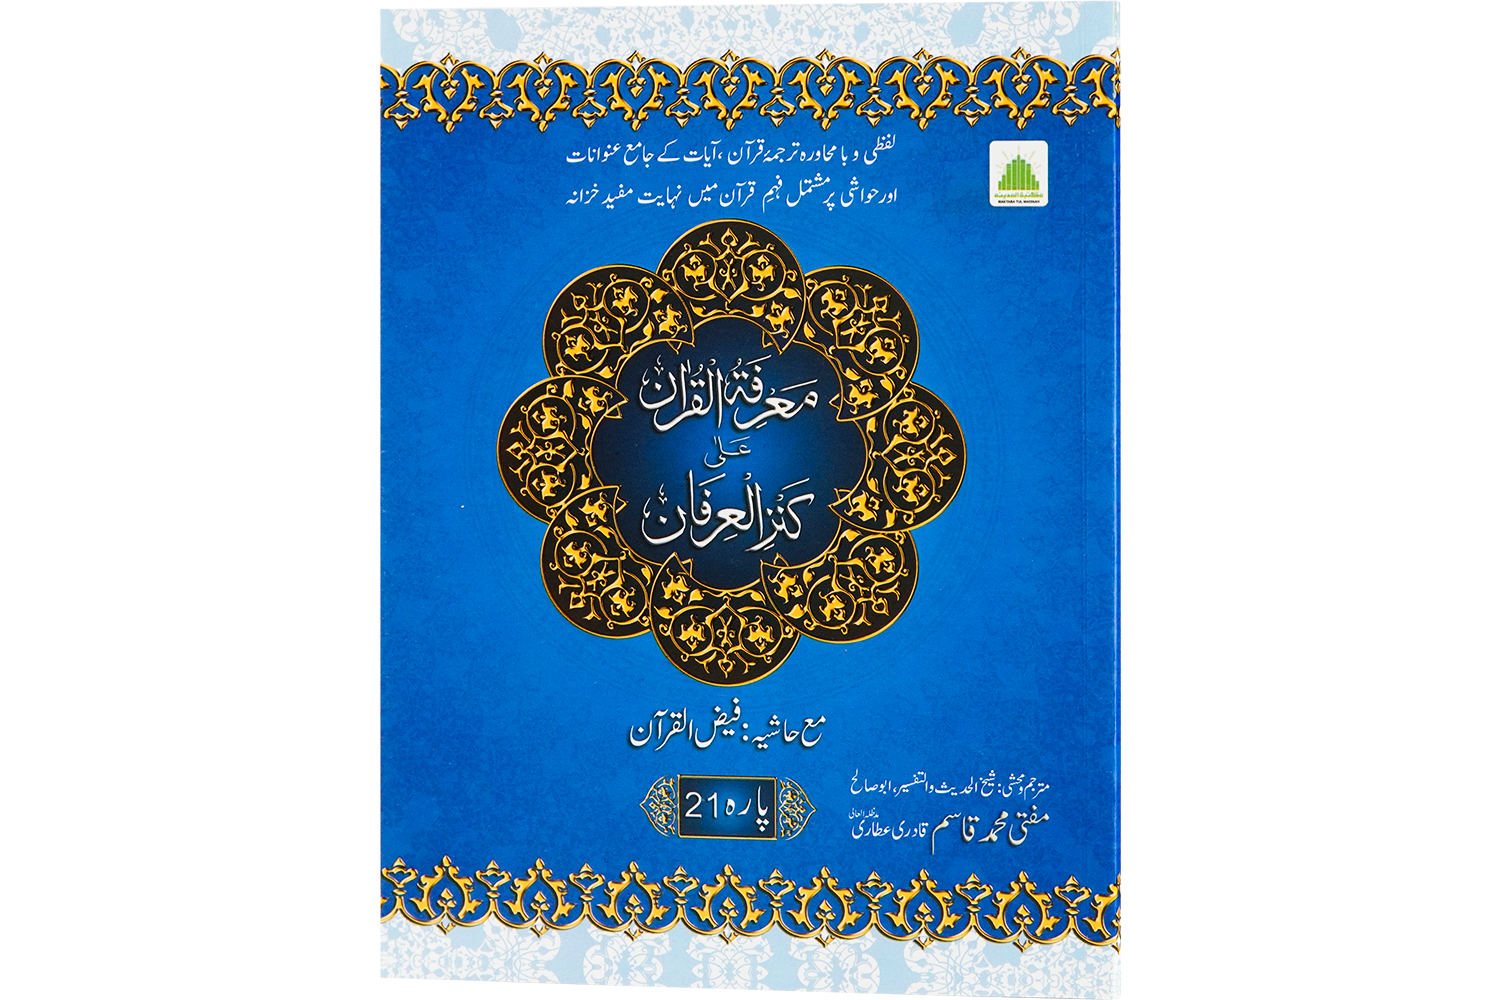 لفظی و با محاورہ ترجمۂ قرآن، آیات کے جامع عنوانات
اور حواشی پر مشتمل فہمِ قرآن میں نہایت مفید خزانہ
مکتبۃ المدینہ
MAKTABA TUL MADINAH
مَعْرِفَۃُ الْقُرْاٰن
عَلٰی
کَنْزِ الْعِرْفَان
مع حاشیہ: فیض القرآن
پارہ 21
مترجم و محشی: شیخ الحدیث والتفسیر، ابو صالح
مفتی محمد قاسم قادری عطاری مدظلہ العالی